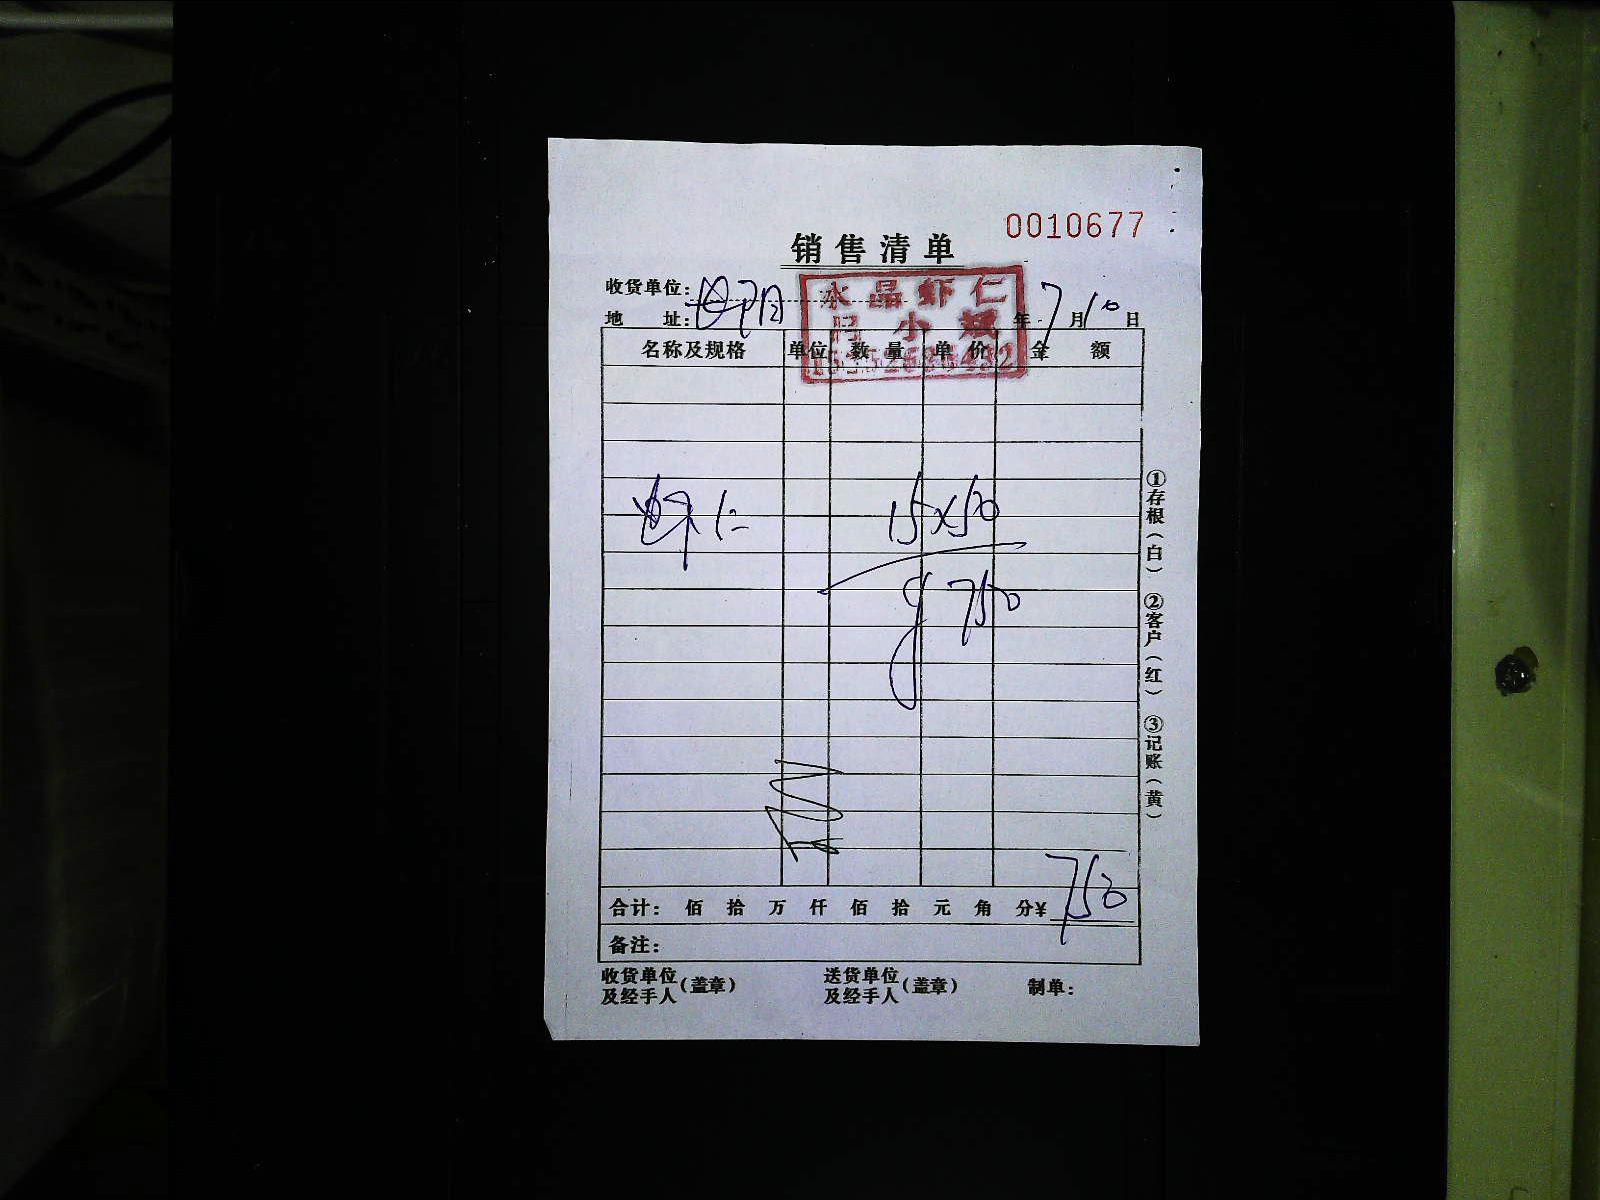 0010677
销售清单
收货单位：
水晶虾仁
地 址： 小斌 年 7 月 10 日
名称及规格 单位 数量 单价 金额
虾仁 15×50
750
合计： 佰 拾 万 仟 佰 拾 元 角 分￥ 750
备注：
收货单位及经手人（盖章） 送货单位及经手人（盖章） 制单：
①存根（白） ②客户（红） ③记账（黄）